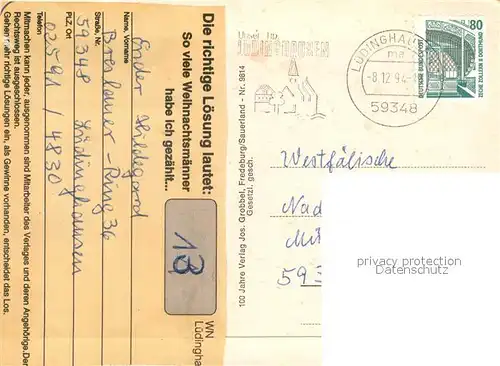 Die richtige Lösung lautet:
So viele Weihnachtsmänner
habe ich gezählt...
13
WN
Lüdingha
Name, Vorname
Hildegard
Straße, Nr.
Breslauer-Ring 36
PLZ, Ort
59348 Lüdinghausen
Telefon
02591 / 4830
Mitmachen kann jeder, ausgenommen sind Mitarbeiter des Verlages und deren Angehörige. Der
Rechtsweg ist ausgeschlossen.
Gehen sehr richtige Lösungen ein, als Gewinne vorhanden, entscheidet das Los.
100 Jahre Verlag Jos. Grobbel, Fredeburg/Sauerland - Nr. 9814
Gesetzl. gesch.
LÜDINGHAUSEN
LÜDINGHAU
-8.12.94-
59348
80
DEUTSCHE BUNDESPOST
ZECHE ZOLLERN II DORTMUND
Westfälische
Na
Mü
59
privacy protection
Datenschutz